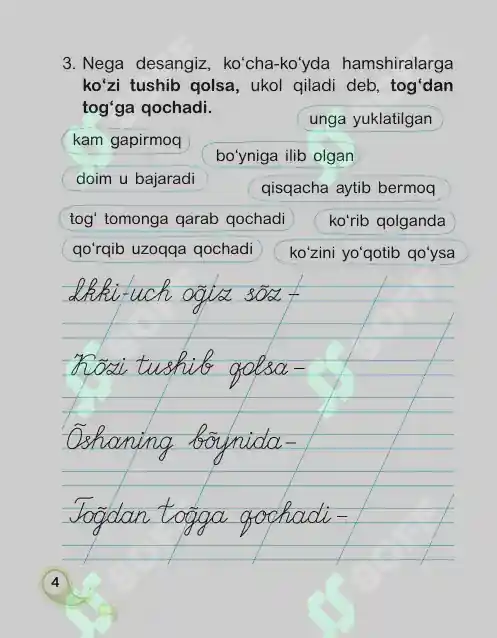 3. Nega desangiz, ko‘cha-ko‘yda hamshiralarga
ko‘zi tushib qolsa, ukol qiladi deb, tog‘dan
tog‘ga qochadi.
unga yuklatilgan
kam gapirmoq
bo‘yniga ilib olgan
doim u bajaradi
qisqacha aytib bermoq
tog‘ tomonga qarab qochadi
ko‘rib qolganda
qo‘rqib uzoqqa qochadi
ko‘zini yo‘qotib qo‘ysa
Ikki-uch og̃iz sõz –
Kõzi tushib qolsa –
Õshaning bõynida –
Tog̃dan tog̃ga qochadi –
4